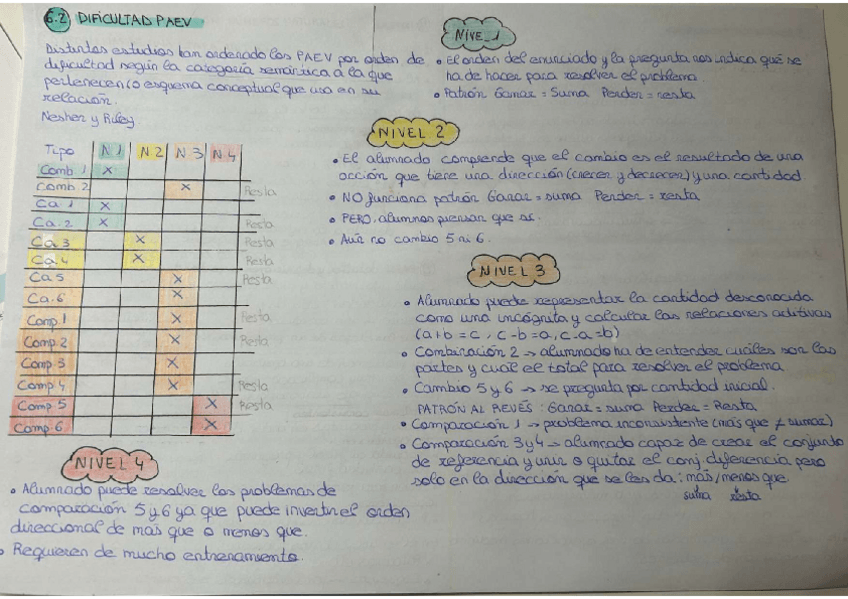 6.2 DIFICULTAD PAEV
Distintos estudios han ordenado los PAEV por orden de
dificultad según la categoría semántica a la que
pertenecen (o esquema conceptual que usa en su
relación.
Nesher y Riley
Tipo N1 N2 N3 N4
Comb 1 X
Comb 2 X Resta
Ca 1 X
Ca. 2 X Resta
Ca 3 X Resta
Ca 4 X Resta
Ca 5 X Resta
Ca. 6 X
Comp 1 X Resta
Comp 2 X Resta
Comp 3 X
Comp 4 X Resta
Comp 5 X Resta
Comp 6 X
NIVEL 4
• Alumnado puede resolver los problemas de
comparación 5 y 6 ya que puede invertir el orden
direccional de más que o menos que.
• Requieren de mucho entrenamiento.
NIVE_1
• El orden del enunciado y la pregunta nos indica qué se
ha de hacer para resolver el problema
• Patrón Ganar = Suma Perder = resta
NIVEL 2
• El alumnado comprende que el cambio es el resultado de una
acción que tiene una dirección (crecer y decrecer) y una cantidad
• NO funciona patrón Ganar = suma Perder = resta
• PERO, alumnos piensan que sí.
• Aún no cambio 5 ni 6.
NIVEL 3
• Alumnado puede representar la cantidad desconocida
como una incógnita y calcular las relaciones aditivas
(a+b=c, c-b=a, c-a=b)
• Combinación 2 → alumnado ha de entender cuáles son las
partes y cual el total para resolver el problema
• Cambio 5 y 6 → se pregunta por cantidad inicial.
PATRÓN AL REVÉS: Ganar = suma Perder = Resta
• Comparación 1 → problema inconsistente (más que ≠ sumar)
• Comparación 3 y 4 → alumnado capaz de crear el conjunto
de referencia y unir o quitar el conj. diferencia pero
solo en la dirección que se les da: más/menos que
suma resta